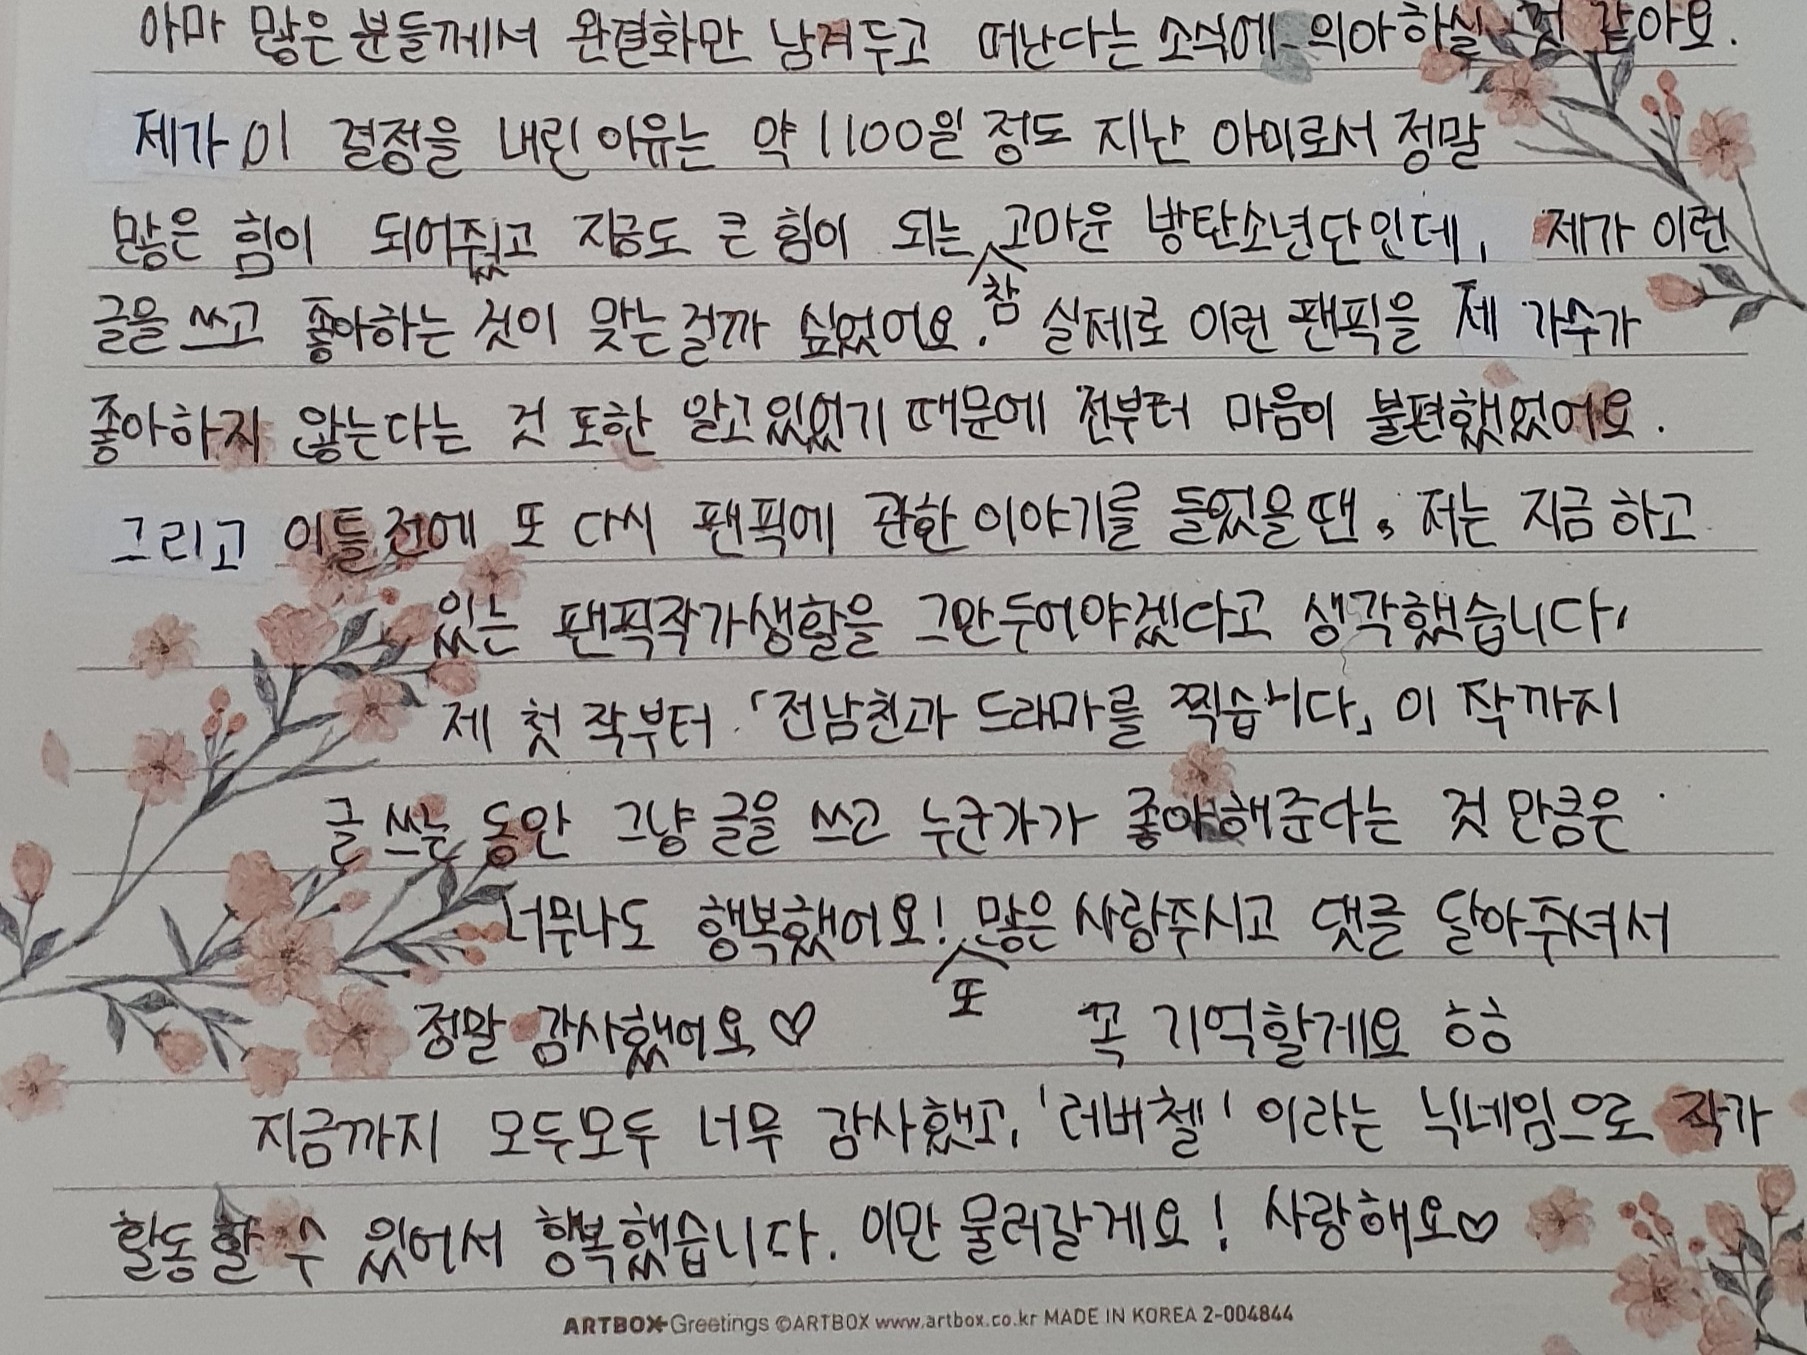 아마 많은 분들께서 완결화만 남겨두고 떠난다는 소식에 의아하실 것 같아요.
제가 이 결정을 내린 이유는 약 1100일 정도 지난 아미로서 정말
많은 힘이 되어줬고 지금도 큰 힘이 되는 참 고마운 방탄소년단인데, 제가 이런
글을 쓰고 좋아하는 것이 맞는걸까 싶었어요. 실제로 이런 팬픽을 제 가수가
좋아하지 않는다는 것 또한 알고있었기 때문에 전부터 마음이 불편했었어요.
그리고 이틀전에 또 다시 팬픽에 관한 이야기를 들었을땐, 저는 지금 하고
있는 팬픽작가생활을 그만두어야겠다고 생각했습니다,
제 첫 작부터 「전남친과 드라마를 찍습니다」 이 작까지
글 쓰는 동안 그냥 글을 쓰고 누군가가 좋아해준다는 것 만큼은
너무나도 행복했어요! 또 많은 사랑주시고 댓글 달아주셔서
정말 감사했어요♡ 꼭 기억할게요 ㅎㅎ
지금까지 모두모두 너무 감사했고, '러버첼' 이라는 닉네임으로 작가
활동 할 수 있어서 행복했습니다. 이만 물러갈게요! 사랑해요♡
ARTBOX Greetings ©ARTBOX www.artbox.co.kr MADE IN KOREA 2-004844